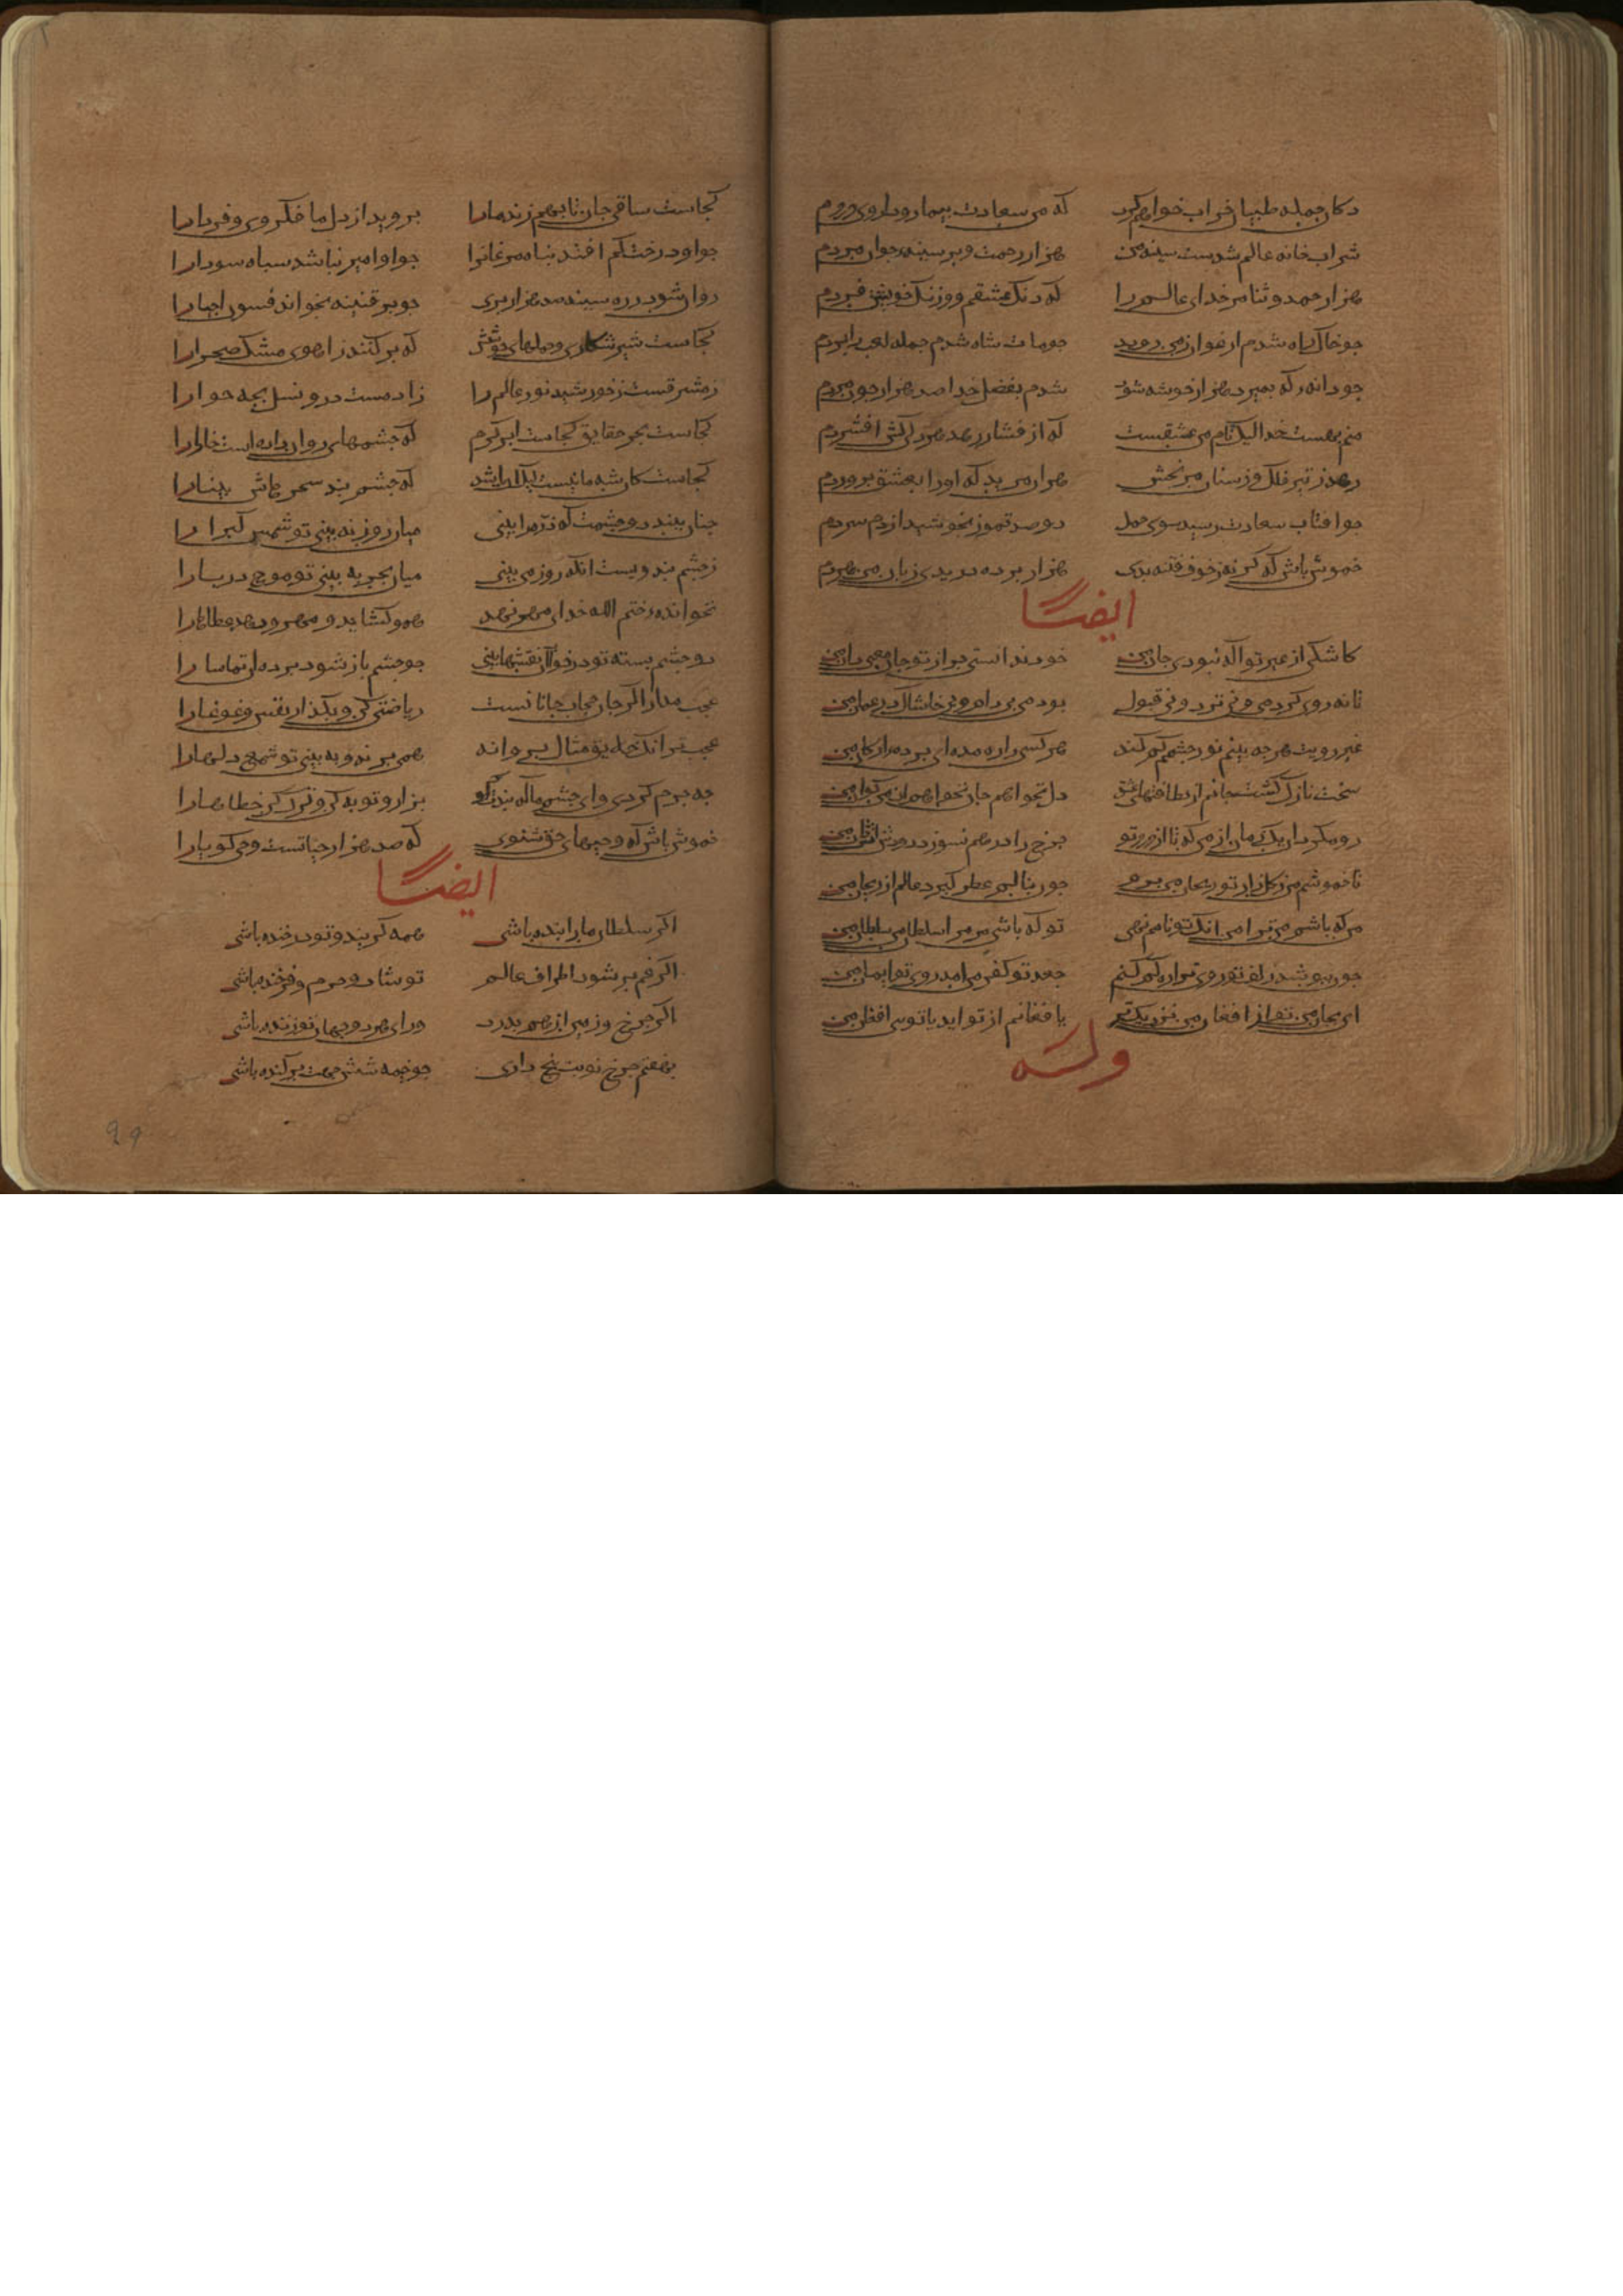 دکان جمله طبیبان خراب خواهم کرد که من سعادت بیمار و داروی دردم
شراب خانه عالم شدست سینه من هزار رحمت و بر سینه جوامردم
هزار حمد و ثنا مر خدای عالم را که دنک عشقم و وز ننک خویشتن فردم
جو خاک شاه شدم ارغوان ز من رویید جو مات شاه شدم جمله لعب را بردم
جو دانه که بمیرد هزار خوشه شود شدم بفضل خدا صد هزار جون مردم
منم بهشت خدا لیک نام من عشقست که از فشار رهد هر دلی کش افشردم
رهد ز تیر فلک وز سنان مریخش هر ان مرید که او را بعشق بروردم
جو افتاب سعادت رسید سوی حمل دو صد تموز بجوشید از دم سردم
خموش باش که کر نه ز خوف فتنه بدی هزار برده دریدی زبان من هردم
ایضا
کاشکی از غیر تو اکه نبودی جان من خود ندانستی بجز از تو جان معنی دان من
تا نه روی کردمی و نی ترد و نی قبول بودمی بی دام و بی خاشاک در عمان من
غیر رویت هر جه بینم نور جشمم کم کند هر کسی را ره مده ای برده مژکان من
سخت نازک کشت جانم از لطافتهای عشق دل نخواهم جان نخواهم ان من کو ان من
جرخ را بر هم نسوزد دود اتشدان من
تا خموشم من ز کلزار تو ریحان می برم جون بنالم عطر کیرد عالم از ریحان من
من که باشم مر ترا من انک تو نامم نهی تو که باشی مر مرا سلطان من سلطان من
جون ببوشد زلف تو روی ترا ره کم کنم جعد تو کفر من امد روی تو ایمان من
ای بجان من تو از افغان من نزدیکتر یا فغانم از تو اید یا توی افغان من
وله
کجاست ساقی جان تا بهم زند ما را بروبد از دل ما فکر دی و فردا را
جو او درخت کم افتد بناه مرغانرا جو او امیر نباشد سباه سودا را
روان شود ز ره سینه صد هزار بری جو بر قنینه بخواند فسون احیا را
کجاست شیر شکاری و حملهای خوشش که بر کنند ز اهوی مشک صحرا را
ز مشرقست ز خورشید نور عالم را ز ادمست در و نسل بجه حوا را
کجاست بحر حقایق کجاست ابر کرم که جشمهای روان داده است خارا را
کجاست کان شه ما نیست لیک ان باشد که جشم بند سحر هاش بینا را
جنان ببندد جشمت که ذره را بینی میان روز نه بینی تو شمس کبرا را
ز جشم بند ویست انکه زورق می بینی میان بحر نه بینی تو موج دریا را
نخوانده ختم الله خدای مهر نهد همو کشاید و مهر و برد غطاها را
دو جشم بسته تو در خواب نقشها بینی جو جشم باز شود برده ان تماشا را
عجب مدار اکر جان حجاب جانانست ریاضتی کن و بکذار نفس و غوغا را
عجبتر انک خلایق مثال بروانه همی برند و نه بینی تو شمع دلها را
جه جرم کردی وای جشم ما که بندت کرد بزار و توبه کن و ترک کن خطاها را
خموش باش که وحیهای حق شنوی که صد هزار حیاتست وحی کویا را
ایضا
اکر سلطان ما را بنده باشی همه کریند و تو در خنده باشی
اکر غم بر شود اطراف عالم تو شاد و خرم و فرخنده باشی
اکر جرخ و زمین از هم بدرد ورای هر دو جهان تو زنده باشی
بهفتم جرخ نوبت بنج داری جو خیمه شش جهت بر کنده باشی